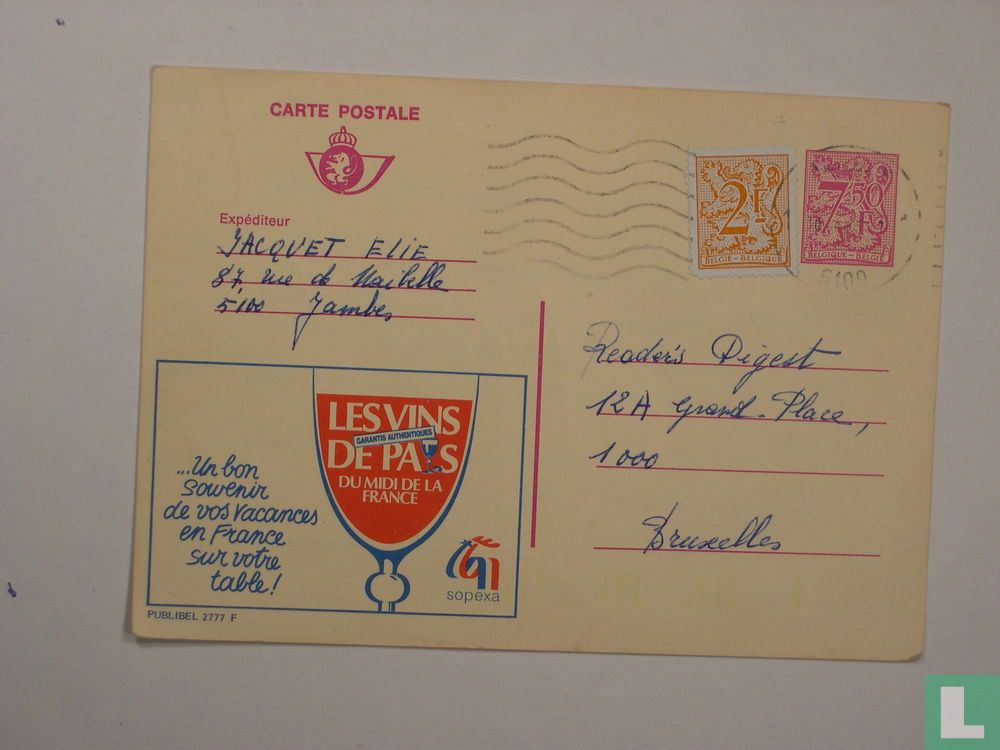 CARTE POSTALE
Expéditeur
JACQUET Elie
87, rue de
5100 Jambes
2F
BELGIË - BELGIQUE
7,50
F
BELGIQUE - BELGIË
5100
Reader's Digest
12A Grand-Place,
1000
Bruxelles
LES VINS
GARANTIS AUTHENTIQUES
DE PAYS
DU MIDI DE LA
FRANCE
...Un bon
souvenir
de vos vacances
en France
sur votre
table!
sopexa
PUBLIBEL 2777 F
L